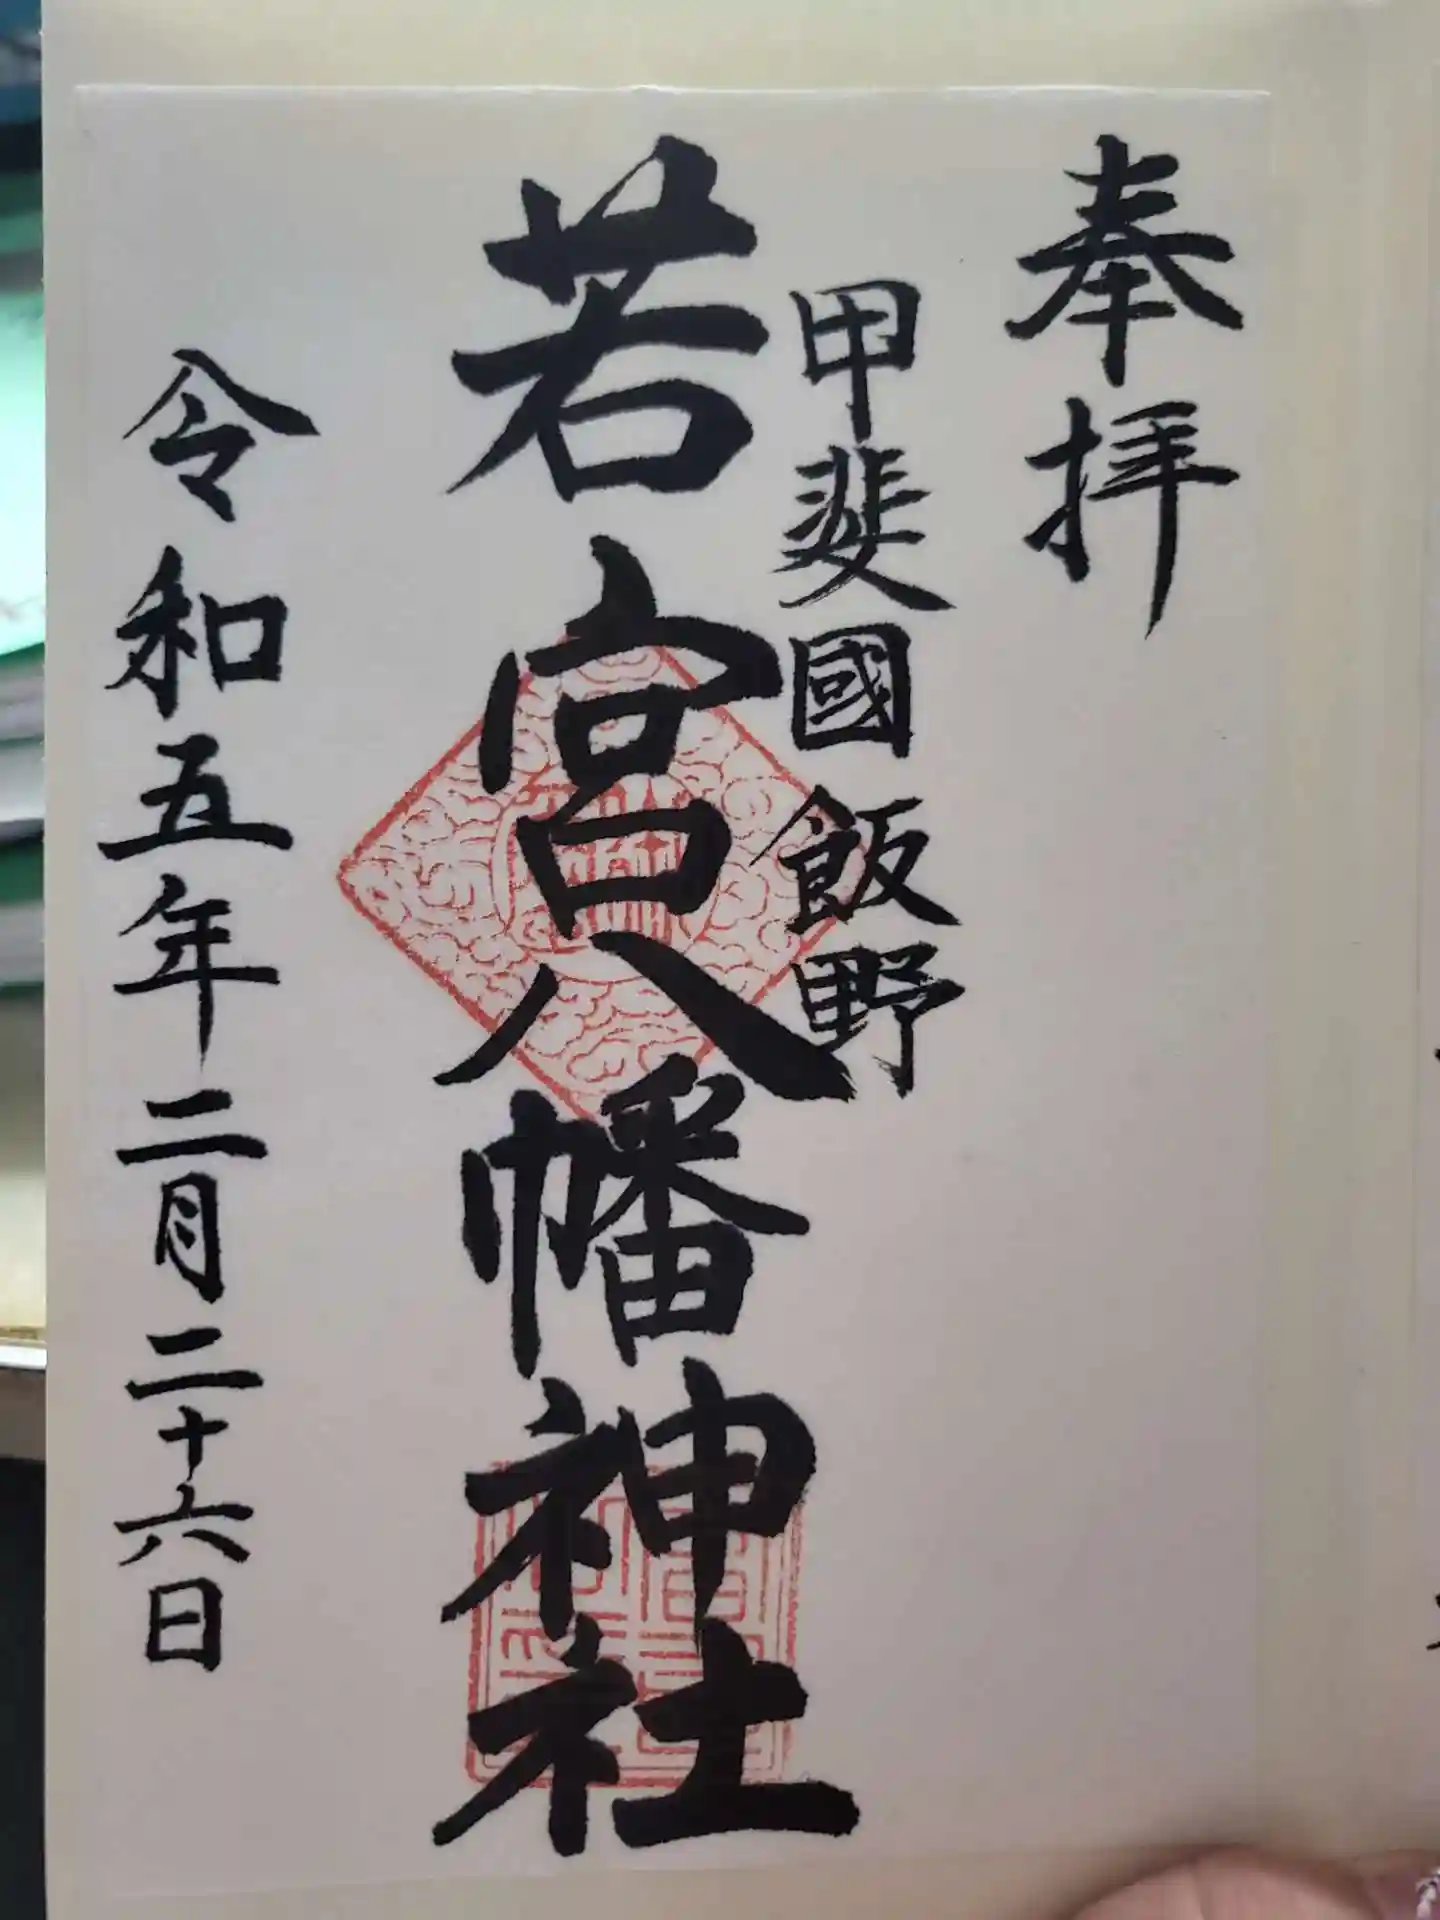 奉拝
甲斐國飯野
若宮八幡神社
令和五年二月二十六日